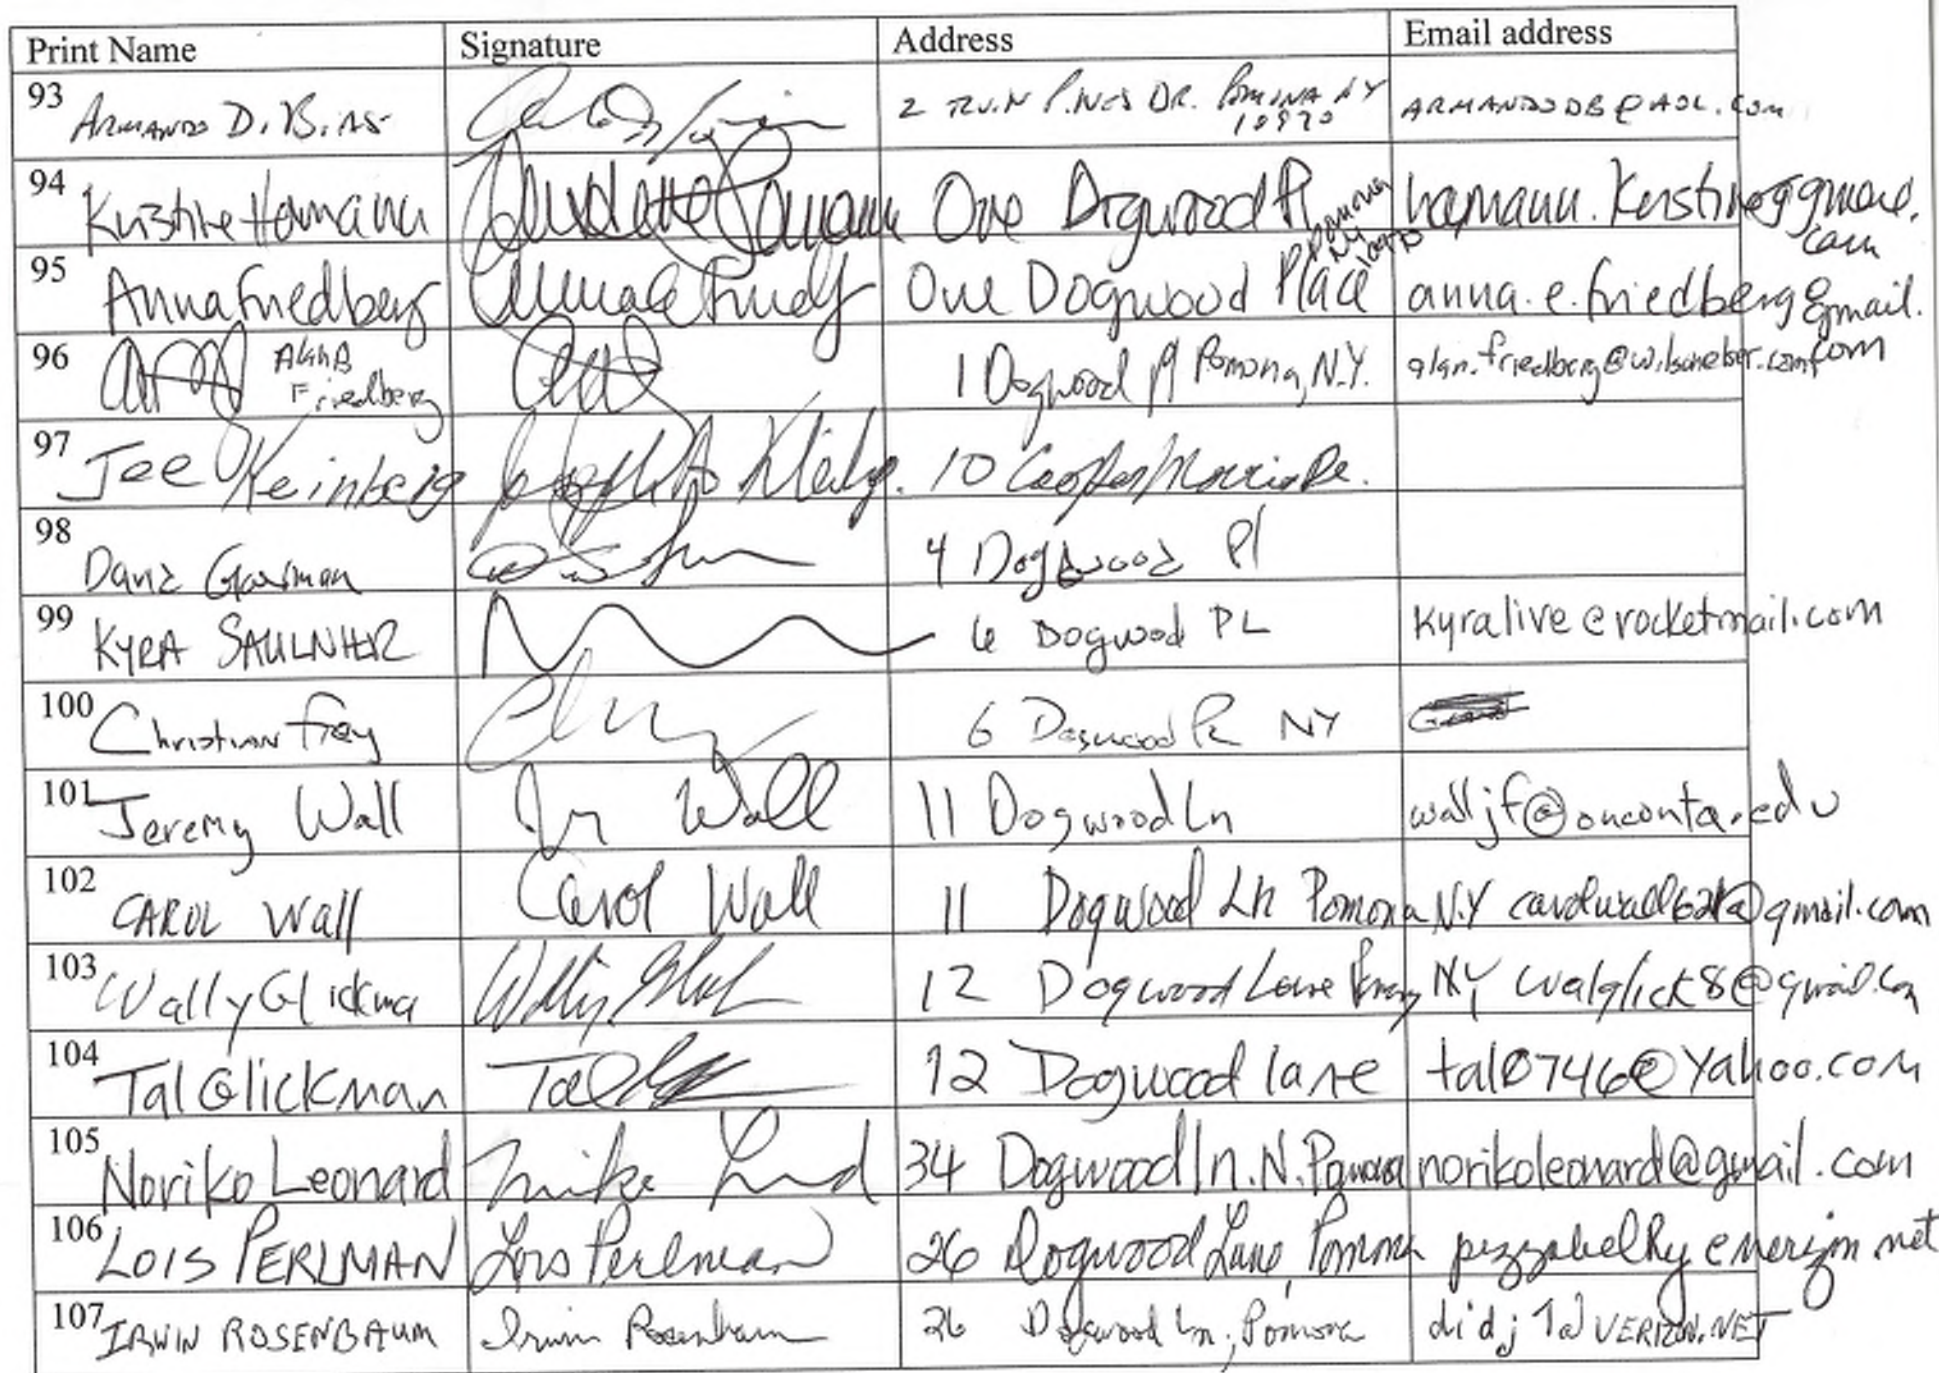 Print Name Signature Address Email address
93 ARMANDO D. BIAS 2 TWIN PINES DR. POMONA NY 10970 ARMANDODB@AOL.COM
94 Kristine Hamann One Dogwood Pl Pomona NY 10970 hamann.kristine@gmail.com
95 Anna Friedberg One Dogwood Place anna.e.friedberg@gmail.com
96 Alan B Friedberg 1 Dogwood Pl Pomona, N.Y. alan.friedberg@wilsonelser.com
97 Joe Kleinberg 10 Cooper Morris Dr.
98 Dana Gorman 4 Dogwood Pl
99 KYRA SAULNIER 6 Dogwood PL kyralive@rocketmail.com
100 Christian Frey 6 Dogwood PL NY
101 Jeremy Wall Wall 11 Dogwood Ln walljf@oneonta.edu
102 CAROL Wall Carol Wall 11 Dogwood Ln Pomona N.Y carolwall621@gmail.com
103 Wally Glickma Wally 12 Dogwood Lane NY walglick8@gmail.com
104 Tal Glickman Tal 12 Dogwood lane tal0746@Yahoo.com
105 Noriko Leonard 34 Dogwood ln. N. Pomona norikoleonard@gmail.com
106 LOIS PERLMAN Lois Perlman 26 Dogwood Lane, Pomona @verizon.net
107 IRWIN ROSENBAUM Irwin Rosenbaum 26 Dogwood Ln, Pomona didj1@VERIZON.NET